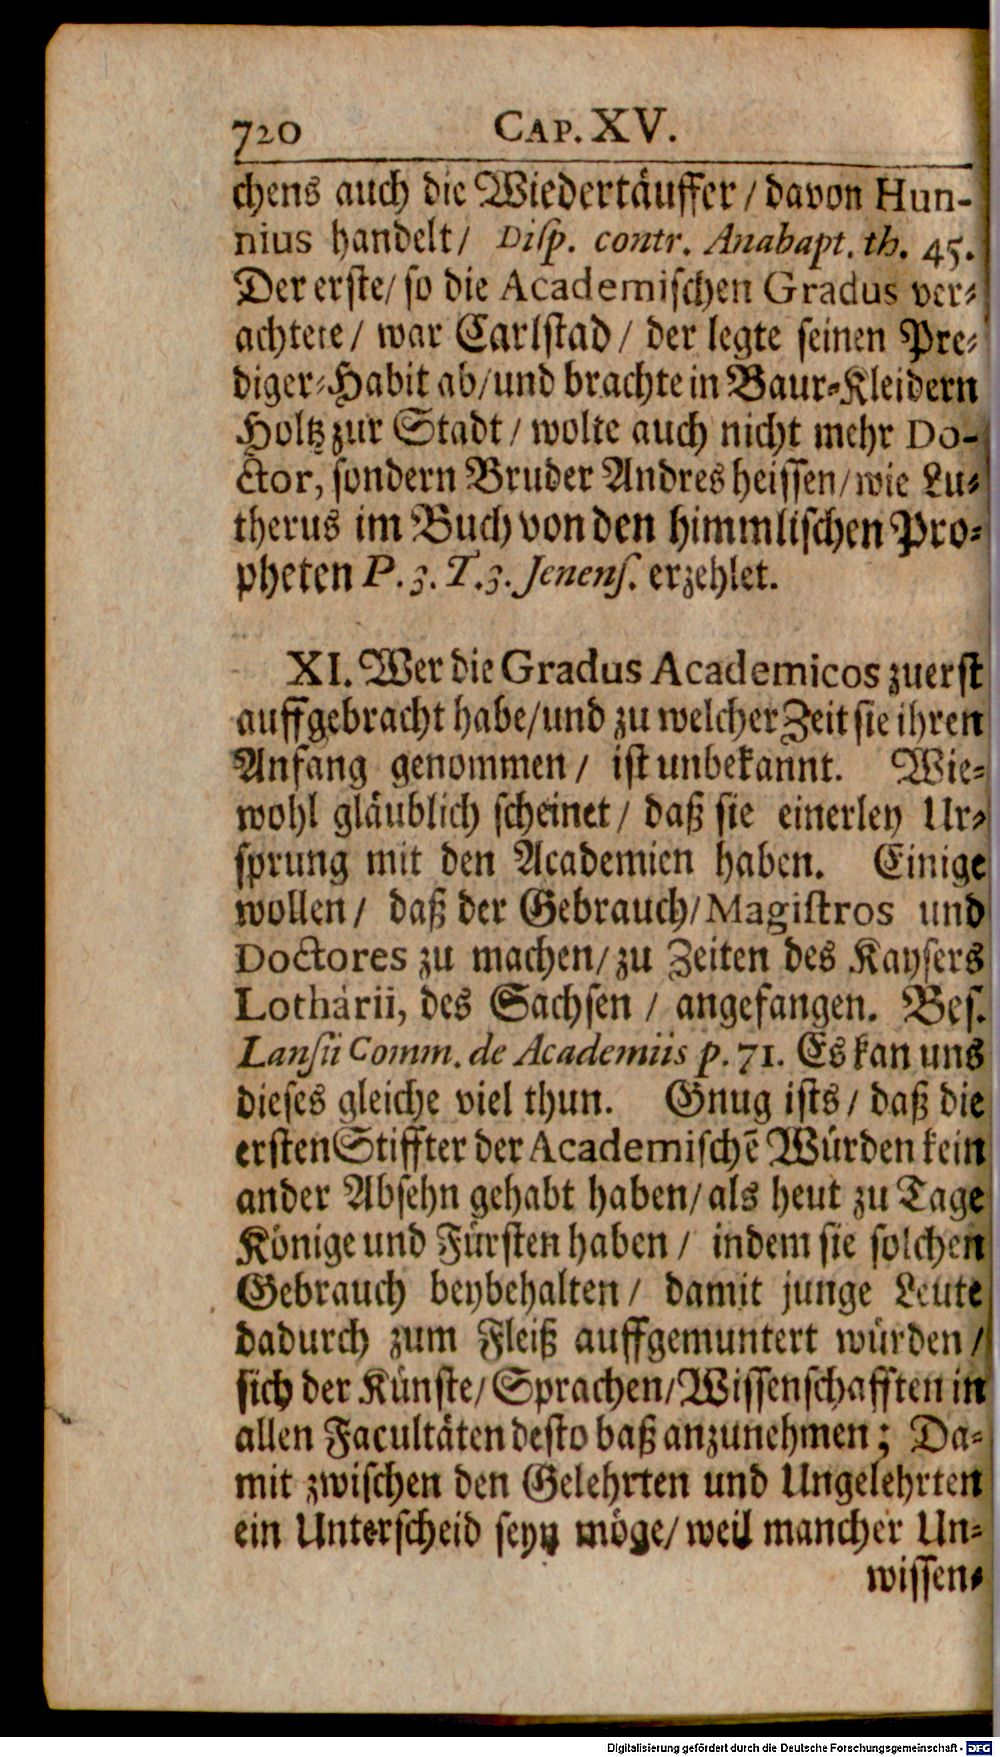 720 CAP. XV.
chens auch die Wiedertäuffer / davon Hun-
nius handelt / Disp. contr. Anabapt. th. 45.
Der erste / so die Academischen Gradus ver-
achtete / war Carlstad / der legte seinen Pre-
diger-Habit ab / und brachte in Baur-Kleidern
Holtz zur Stadt / wolte auch nicht mehr Do-
ctor, sondern Bruder Andres heissen / wie Lu-
therus im Buch von den himmlischen Pro-
pheten P. 3. T. 3. Jenens. erzehlet.
XI. Wer die Gradus Academicos zuerst
auffgebracht habe / und zu welcher Zeit sie ihren
Anfang genommen / ist unbekannt. Wie-
wohl gläublich scheinet / daß sie einerley Ur-
sprung mit den Academien haben. Einige
wollen / daß der Gebrauch / Magistros und
Doctores zu machen / zu Zeiten des Kaysers
Lotharii, des Sachsen / angefangen. Bes.
Lansii Comm. de Academiis p. 71. Es kan uns
dieses gleiche viel thun. Gnug ists / daß die
ersten Stiffter der Academischẽ Würden kein
ander Absehn gehabt haben / als heut zu Tage
Könige und Fürsten haben / indem sie solchen
Gebrauch beybehalten / damit junge Leute
dadurch zum Fleiß auffgemuntert würden /
sich der Künste / Sprachen / Wissenschafften in
allen Facultäten desto baß anzunehmen; Da-
mit zwischen den Gelehrten und Ungelehrten
ein Unterscheid seyn möge / weil mancher Un-
wissen-
Digitalisierung gefördert durch die Deutsche Forschungsgemeinschaft - DFG